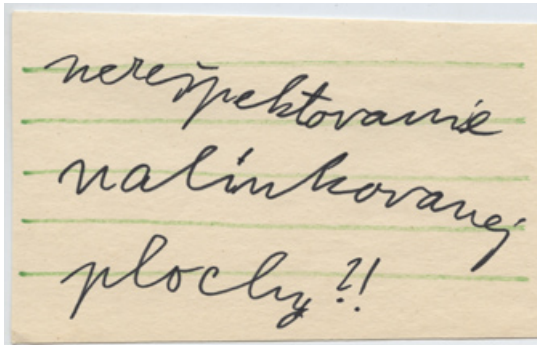 nerešpektovanie
nalinkovanej
plochy?!